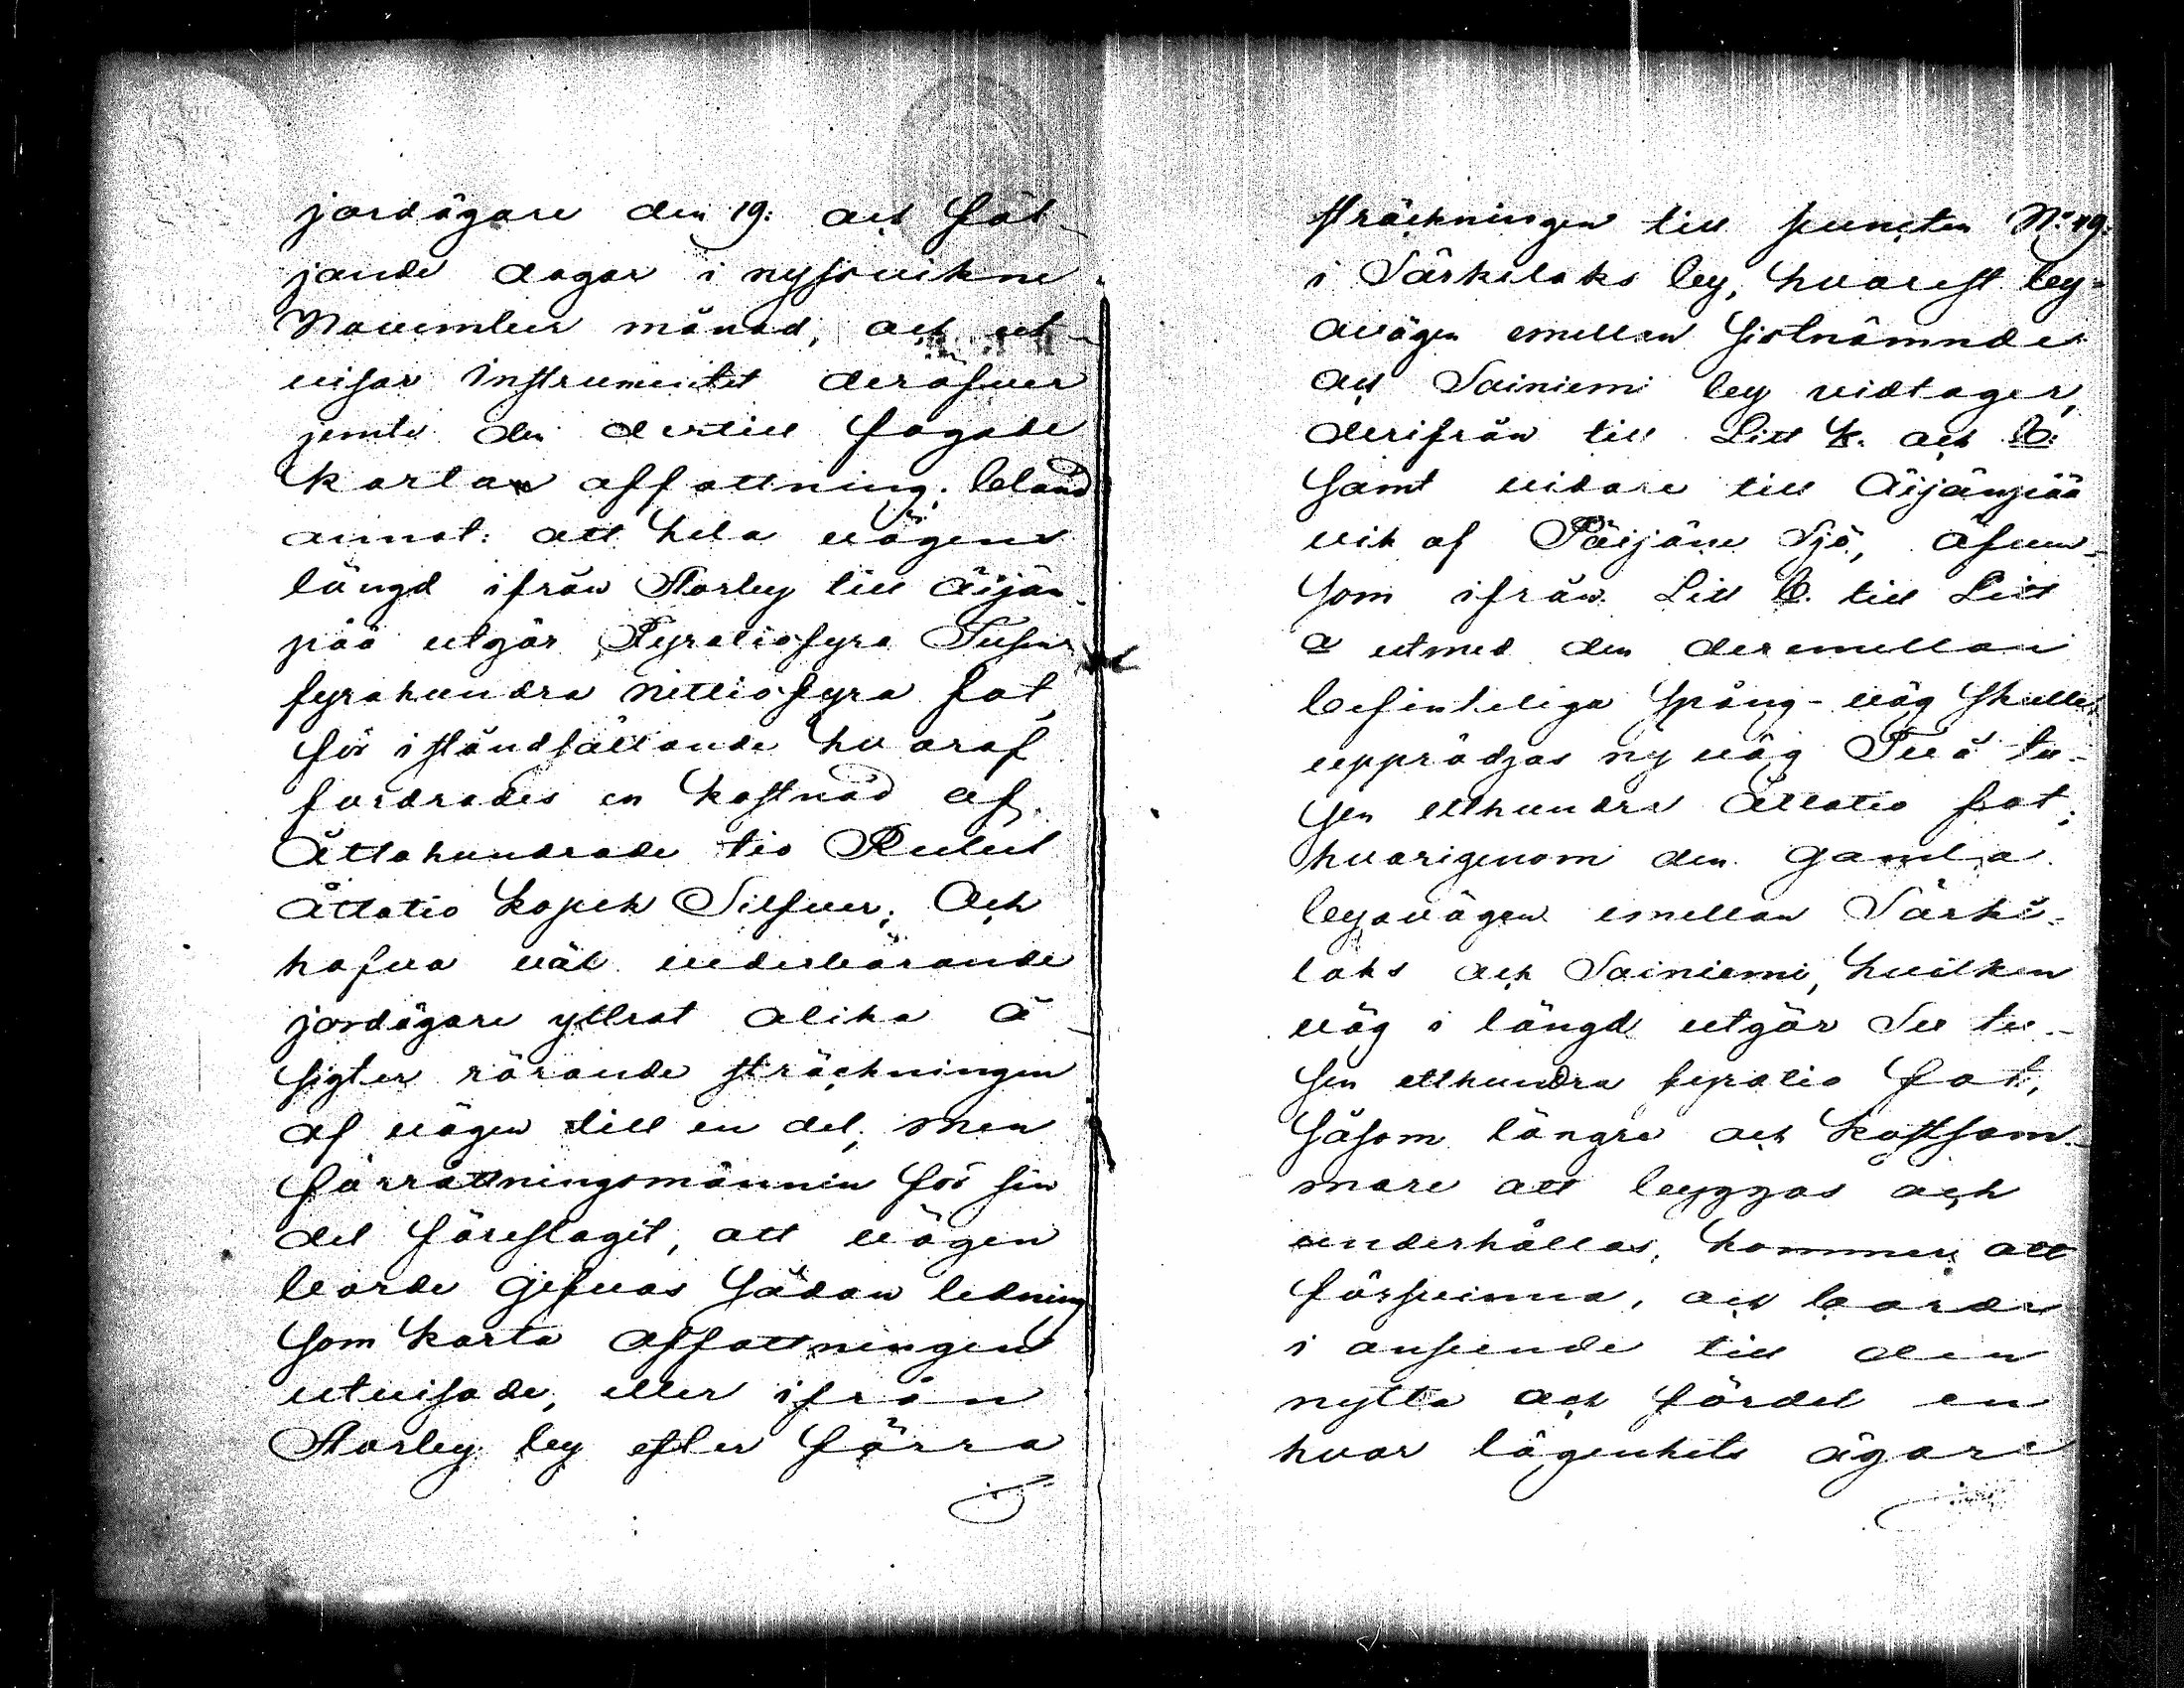 jordägare den 19: och föl-
jande dagar i nyssvikne
November månad, och ut-
visar Instrumentet deröfver
jemte den dertill fogade
kartan affattning, bland
annat: att hela vägens
längd ifrån Storby till Äijän-
pää utgör Fyratiofyra Tusen
fyrahundra nittiofyra fot,
för iståndsättande hvaraf
fordrades en kostnad af
Åttahundrade tio Rubel
åttatio kopek Silfver; Och
hafva väl vederbörande
jordägare yttrat olika å-
sigter rörande sträckningen
af vägen till en del, men
förrättningsmännen för sin
del föreslagit, att vägen
borde gifvas sådan ledning
som karta affattningen
utvisade, eller ifrån
Storby by efter förra
sträckningen till puncten No 19:
i Särkilaks by, hvarest by-
avägen emellan sistnämnde
och Sainiemi by vidtager,
derifrån till Litt k. och b:
samt vidare till Äijänpää
vik af Päijäne Sjö, äfven-
som ifrån Litt b. till Litt
a utmed den deremellan
befinteliga spång-väg skulle
upprödjas ny väg Två tu-
sen etthundra åttatio fot;
hvarigenom den gamla
byavägen emellan Särki-
laks och Sainiemi, hvilken
väg i längd utgör Sju tu-
sen etthundra fyratio fot,
såsom längre och kostsam-
mare att byggas och
underhållas, kommer att
försvinna, och borde
i anseende till den
nytta och fördel en
hvar lägenhets ägare